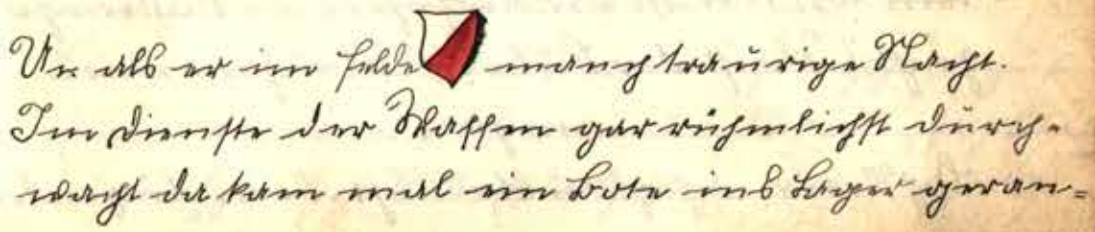 Un als er im felde manch traurige Nacht.
Im Dienste der Waffen gar rühmlichst durch-
wacht da kam mal ein Bote ins Lager geran=